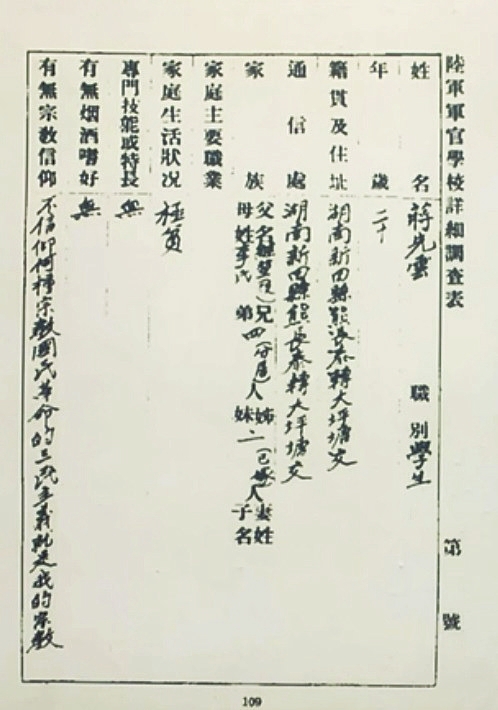 陸軍軍官學校詳細調查表 第 號
姓名 蔣先雲 職別 學生
年歲 二十
籍貫及住址 湖南新田縣 大坪塘
通信處 湖南新田縣 長泰轉大坪塘交
家族 父名 兄 人姊 人妻姓
母姓李氏 弟四 妹二 子名
家庭主要職業
家庭生活狀況 極貧
專門技能或特長 無
有無烟酒嗜好 無
有無宗教信仰 不信仰何種宗教國民革命的三民主義就是我的宗教
109